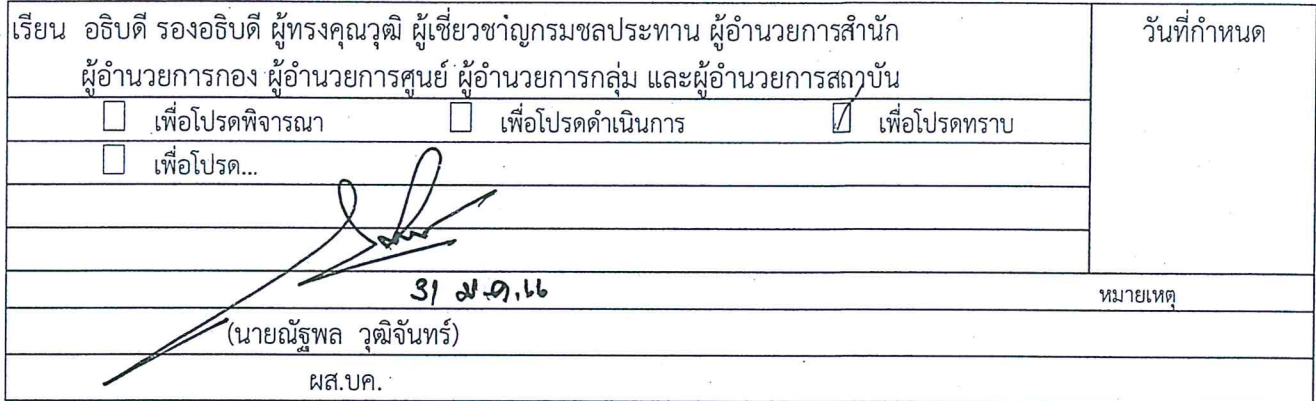 เรียน อธิบดี รองอธิบดี ผู้ทรงคุณวุฒิ ผู้เชี่ยวชาญกรมชลประทาน ผู้อำนวยการสำนัก
วันที่กำหนด
ผู้อำนวยการกอง ผู้อำนวยการศูนย์ ผู้อำนวยการกลุ่ม และผู้อำนวยการสถาบัน
เพื่อโปรดพิจารณา เพื่อโปรดดำเนินการ เพื่อโปรดทราบ
เพื่อโปรด...
31 มี.ค.66
หมายเหตุ
(นายณัฐพล วุฒิจันทร์)
ผส.บค.